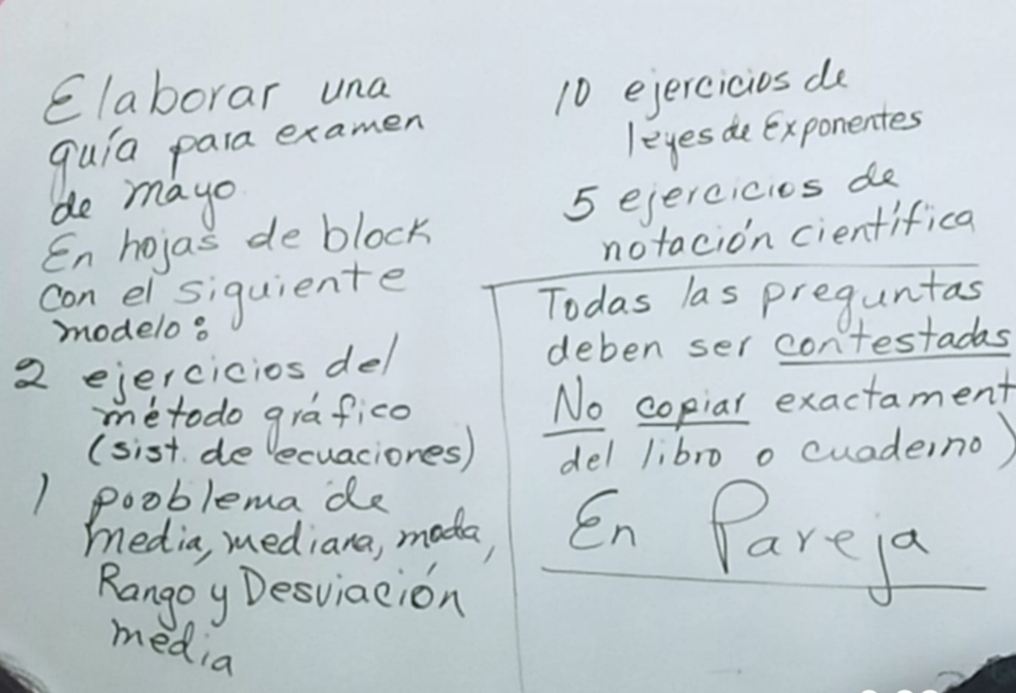 Elaborar una
guía para examen
de mayo.
En hojas de block
con el siguiente
modelo:
2 ejercicios del
método gráfico
(sist. de ecuaciones)
1 problema de
media, mediana, moda,
Rango y Desviación
media
10 ejercicios de
leyes de Exponentes
5 ejercicios de
notación científica
Todas las preguntas
deben ser contestadas
No copiar exactament
del libro o cuaderno)
En Pareja